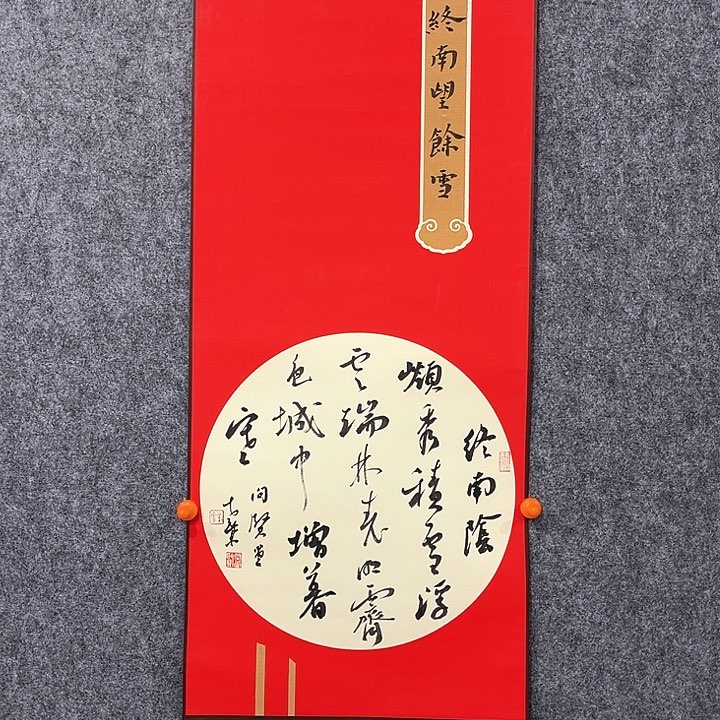 終南望餘雪
终南陰
嶺秀積雪浮
雲端林表明霽
色城中增暮
寒
问贤堂